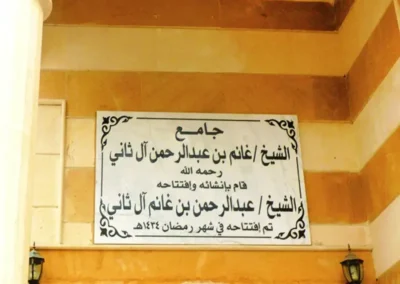 جامع
الشيخ / غانم بن عبدالرحمن آل ثاني
رحمه الله
قام بإنشائه وإفتتاحه
الشيخ / عبدالرحمن بن غانم آل ثاني
تم إفتتاحه في شهر رمضان ١٤٣٤هـ